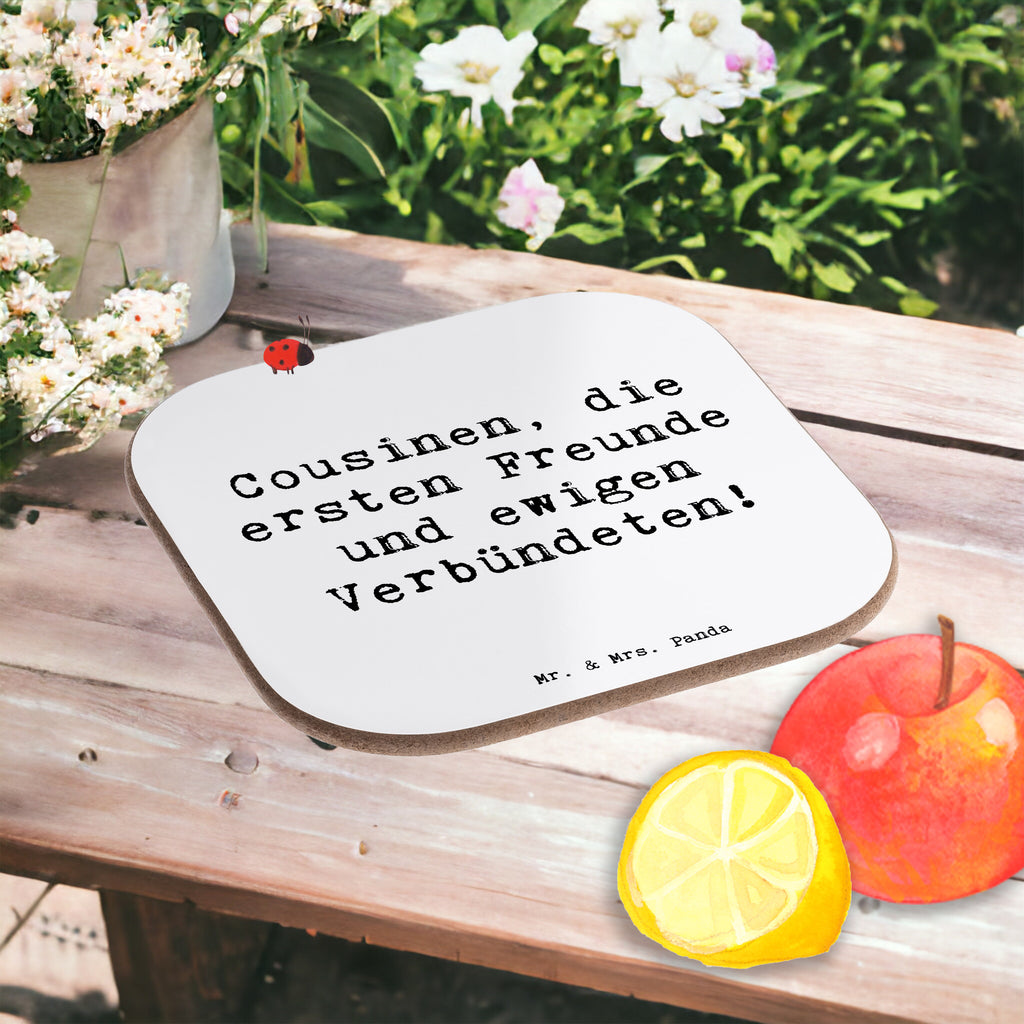 Cousinen, die
ersten Freunde
und ewigen
Verbündeten!
Mr. & Mrs. Panda